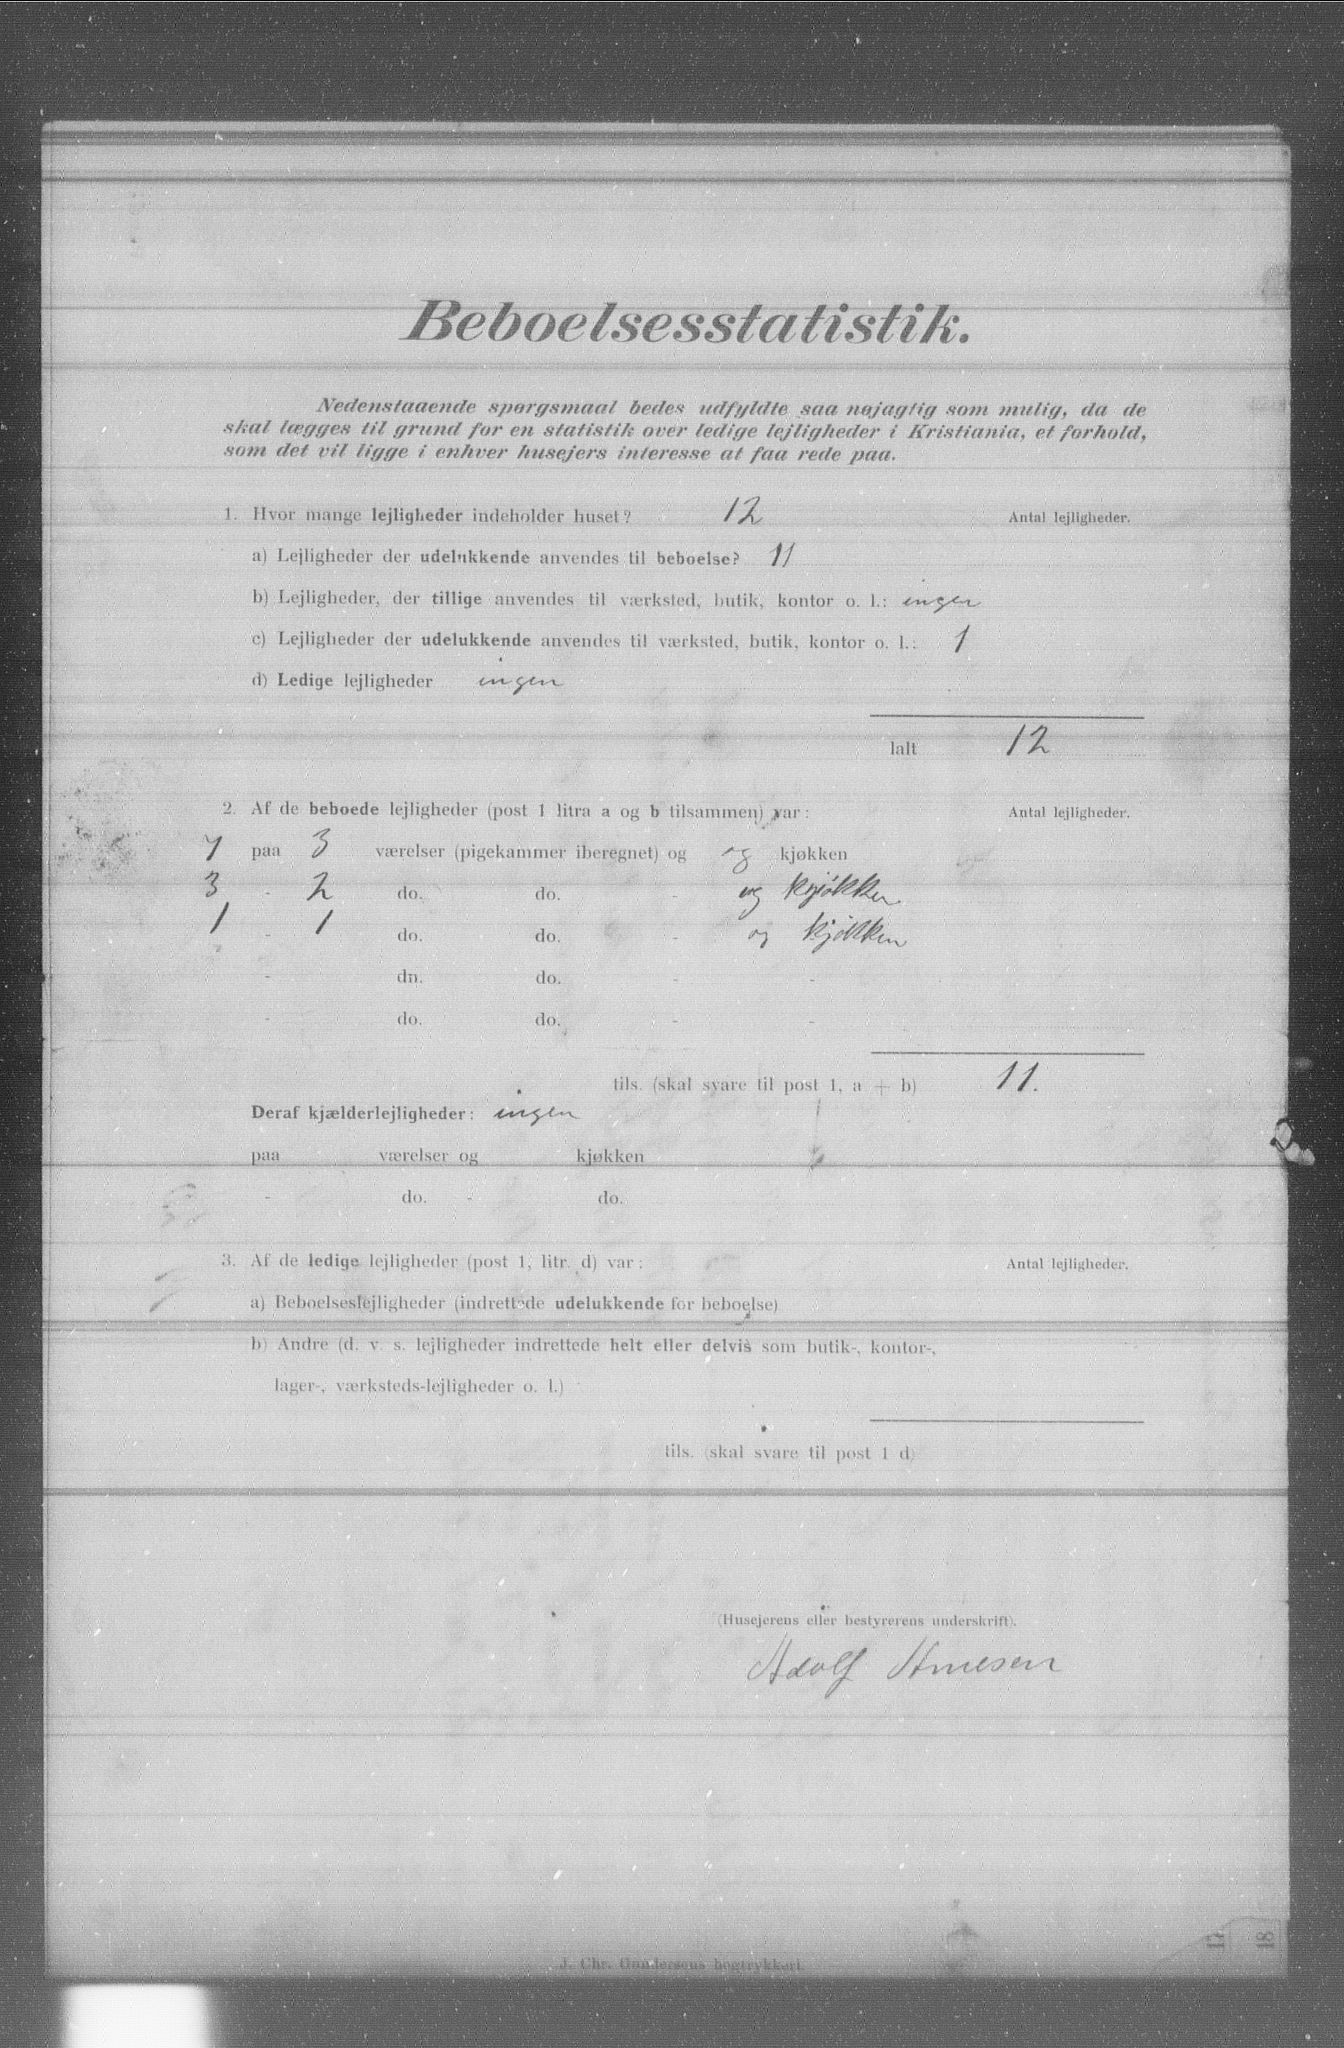 Beboelsesstatistik.
Nedenstaaende spørgsmaal bedes udfyldte saa nøjagtig som mulig, da de
skal lægges til grund for en statistik over ledige lejligheder i Kristiania, et forhold,
som det vil ligge i enhver husejers interesse at faa rede paa.
1. Hvor mange lejligheder indeholder huset? 12 Antal lejligheder.
a) Lejligheder der udelukkende anvendes til beboelse? 11
b) Lejligheder, der tillige anvendes til værksted, butik, kontor o. l.: ingen
c) Lejligheder der udelukkende anvendes til værksted, butik, kontor o. l.: 1
d) Ledige lejligheder ingen
Ialt 12
2. Af de beboede lejligheder (post 1 litra a og b tilsammen) var: Antal lejligheder.
7 paa 3 værelser (pigekammer iberegnet) og og kjøkken
3 - 2 do. do. - og kjøkken
1 - 1 do. do. - og kjøkken
- dn. do. - -
- do. do. - -
tils. (skal svare til post 1, a + b) 11.
Deraf kjælderlejligheder: ingen
paa værelser og kjøkken
- do. - do.
3. Af de ledige lejligheder (post 1, litr. d) var: Antal lejligheder.
a) Beboelseslejligheder (indrettede udelukkende for beboelse)
b) Andre (d. v. s. lejligheder indrettede helt eller delvis som butik-, kontor-,
lager-, værksteds-lejligheder o. l.)
tils. (skal svare til post 1 d)
(Husejerens eller bestyrerens underskrift).
Adolf Arnesen
J. Chr. Gundersens bogtrykkeri.